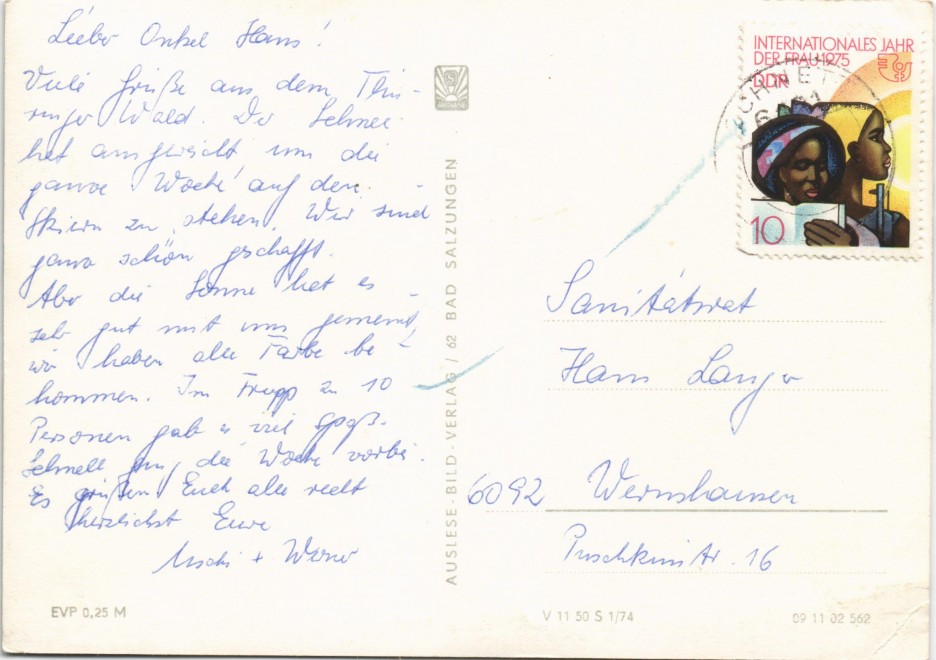 Lieber Onkel Hans!
Viele Grüße aus dem Thü-
ringer Wald. Der Schnee
hat ausgereicht, um die
ganze Woche auf den
Skiern zu stehen. Wir sind
ganz schön geschafft.
Aber die Sonne hat es
sehr gut mit uns gemeint,
wir haben alle Farbe be-
kommen. Im Trupp zu 10
Personen gab es viel Spaß.
Schnell ging die Woche vorbei.
Es grüßen Euch alle recht
herzlichst Eure
Uschi + Werner
EVP 0,25 M
AUSLESE-BILD-VERLAG / 62 BAD SALZUNGEN
INTERNATIONALES JAHR
DER FRAU 1975
DDR
10
Sanitätsrat
Hans Langer
6092 Wernshausen
Puschkinstr. 16
V 11 50 S 1/74
09 11 02 562